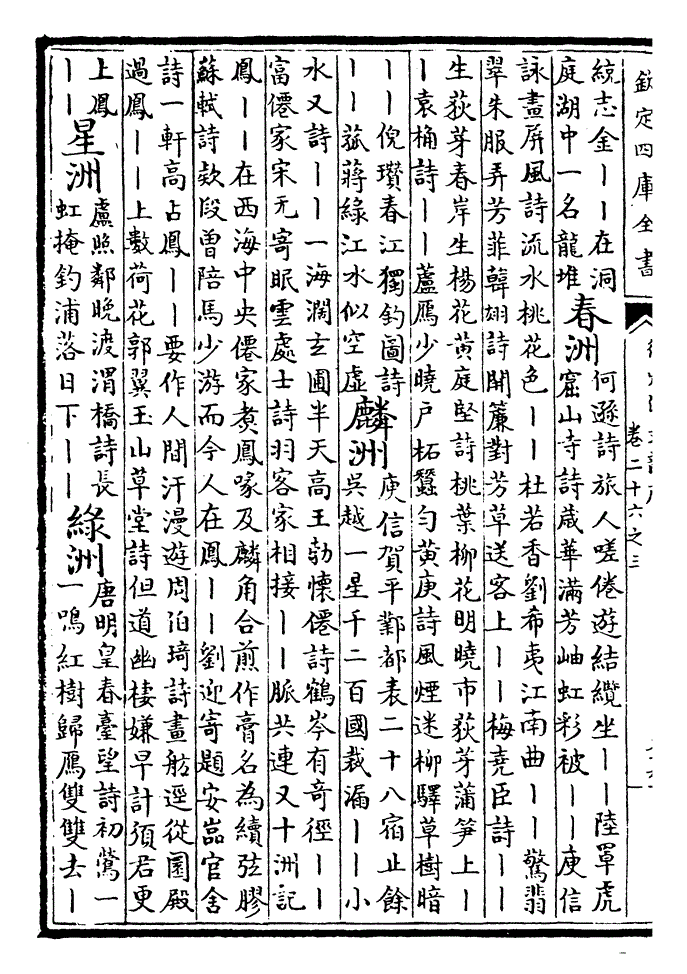 欽定四庫全書
卷二十六之三
統志金丨丨在洞
庭湖中一名龍堆
春洲
何遜詩旅人嗟倦遊結纜坐丨丨陸罩虎
窟山寺詩葳華滿芳岫虹彩被丨丨庾信
詠畫屏風詩流水桃花色丨丨杜若香劉希夷江南曲丨丨驚翡
翠朱服弄芳菲韓翃詩開簾對芳草送客上丨丨梅堯臣詩丨丨
生荻芽春岸生楊花黃庭堅詩桃葉柳花明曉市荻芽蒲笋上丨
丨袁桷詩丨丨蘆鴈少曉戶柘蠶勻黃庚詩風煙迷柳驛草樹暗
丨丨倪瓚春江獨釣圖詩
丨丨菰蔣綠江水似空虛
麟洲
庾信賀平鄴都表二十八宿止餘
吳越一星千二百國裁漏丨丨小
水又詩丨丨一海濶玄圃半天高王勃懷僊詩鶴岑有奇徑丨丨
富僊家宋无寄眠雲處士詩羽客家相接丨丨脈共連又十洲記
鳳丨丨在西海中央僊家煑鳳喙及麟角合煎作膏名為續弦膠
蘇軾詩欵段曽陪馬少游而今人在鳳丨丨劉迎寄題安嵓官舍
詩一軒高占鳳丨丨要作人間汗漫遊周伯琦詩畫舫逕從園殿
過鳳丨丨上數荷花郭翼玉山草堂詩但道幽棲嫌早計須君更
上鳳
丨丨
星洲
盧照鄰晚渡渭橋詩長
虹掩釣浦落日下丨丨
綠洲
唐明皇春臺望詩初鶯一
一鳴紅樹歸鴈雙雙去丨